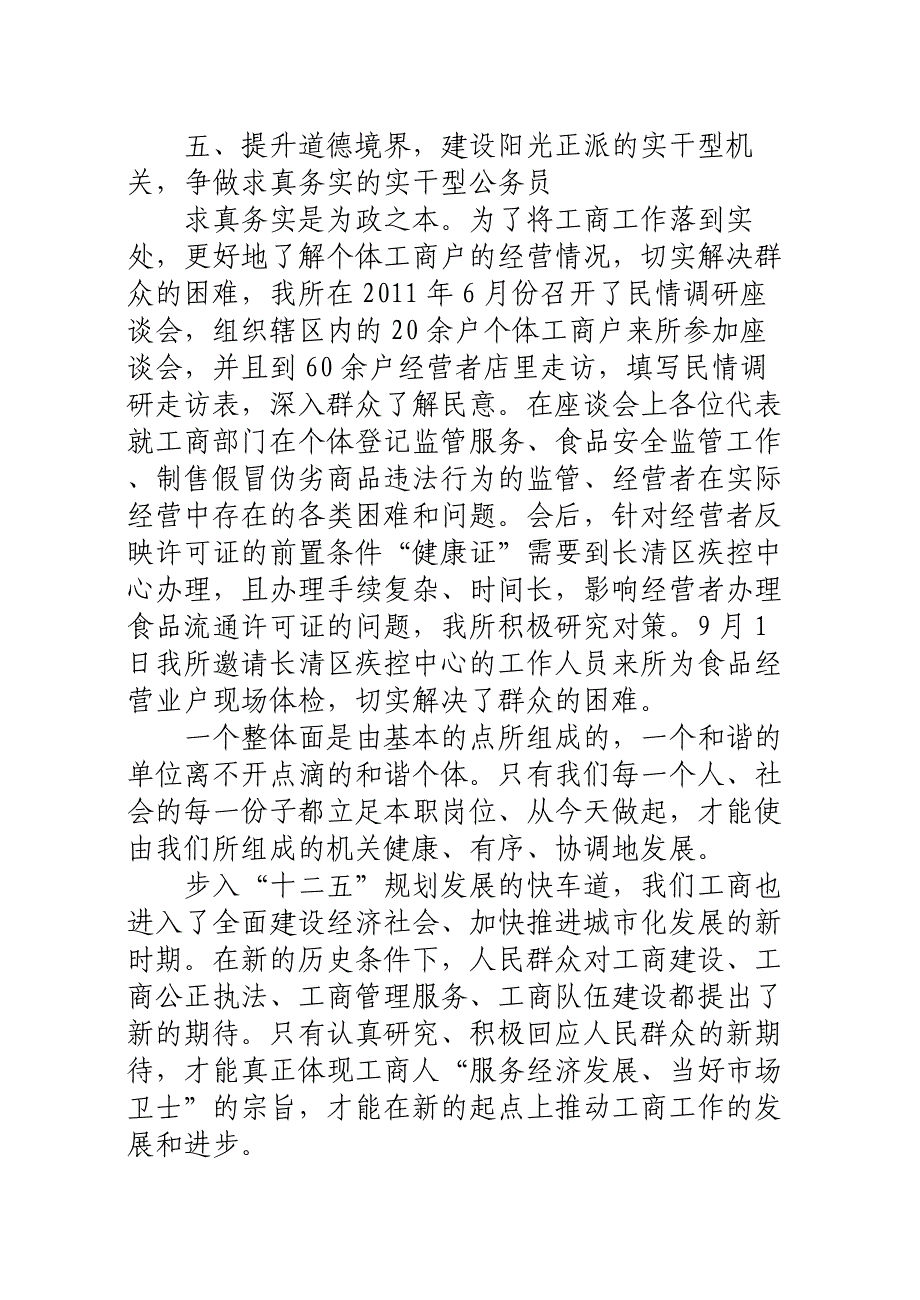 五、提升道德境界，建设阳光正派的实干型机
关，争做求真务实的实干型公务员
求真务实是为政之本。为了将工商工作落到实
处，更好地了解个体工商户的经营情况，切实解决群
众的困难，我所在 2011 年 6 月份召开了民情调研座
谈会，组织辖区内的 20 余户个体工商户来所参加座
谈会，并且到 60 余户经营者店里走访，填写民情调
研走访表，深入群众了解民意。在座谈会上各位代表
就工商部门在个体登记监管服务、食品安全监管工作
、制售假冒伪劣商品违法行为的监管、经营者在实际
经营中存在的各类困难和问题。会后，针对经营者反
映许可证的前置条件“健康证”需要到长清区疾控中
心办理，且办理手续复杂、时间长，影响经营者办理
食品流通许可证的问题，我所积极研究对策。9 月 1
日我所邀请长清区疾控中心的工作人员来所为食品经
营业户现场体检，切实解决了群众的困难。
一个整体面是由基本的点所组成的，一个和谐的
单位离不开点滴的和谐个体。只有我们每一个人、社
会的每一份子都立足本职岗位、从今天做起，才能使
由我们所组成的机关健康、有序、协调地发展。
步入“十二五”规划发展的快车道，我们工商也
进入了全面建设经济社会、加快推进城市化发展的新
时期。在新的历史条件下，人民群众对工商建设、工
商公正执法、工商管理服务、工商队伍建设都提出了
新的期待。只有认真研究、积极回应人民群众的新期
待，才能真正体现工商人“服务经济发展、当好市场
卫士”的宗旨，才能在新的起点上推动工商工作的发
展和进步。